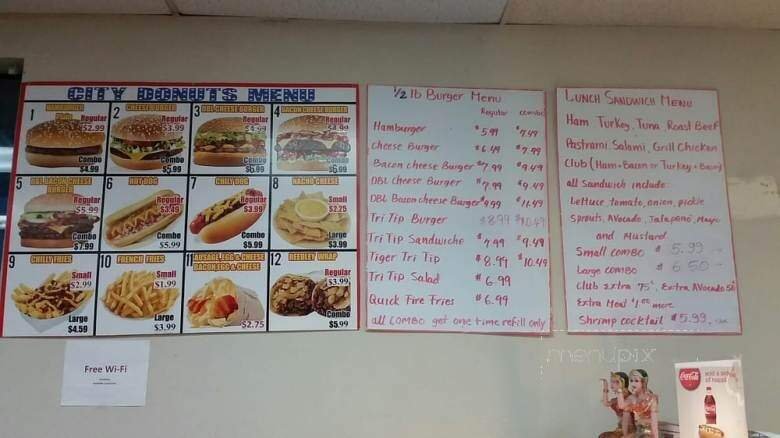 CITY DONUTS MENU
1
HAMBURGER
Regular
$2.99
Combo
$4.99
2
CHEESEBURGER
Regular
$3.99
Combo
$5.99
3
DBL CHEESE BURGER
Regular
$4.99
Combo
$6.99
4
BACON CHEESE BURGER
Regular
$4.99
Combo
$6.99
5
DBL BACON CHEESE
BURGER
Regular
$5.99
Combo
$7.99
6
HOT DOG
Regular
$3.49
Combo
$5.99
7
CHILI DOG
Regular
$3.99
Combo
$5.99
8
NACHO CHEESE
Small
$2.25
Large
$3.49
9
CHILLY FRIES
Small
$2.99
Large
$4.59
10
FRENCH FRIES
Small
$1.99
Large
$3.99
11
SAUSAGE, EGG & CHEESE
BACON, EGG & CHEESE
$2.75
12
REEDLEY WRAP
Regular
$3.99
Combo
$5.99
Free Wi-Fi
1/2 lb Burger Menu
Regular combo
Hamburger $5.99 $7.49
Cheese Burger $6.49 $7.99
Bacon Cheese Burger $7.99 $9.49
DBL Cheese Burger $7.99 $9.49
DBL Bacon Cheese Burger $9.99 $11.49
Tri Tip Burger $8.99 $10.49
Tri Tip Sandwiche $7.99 $9.49
Tiger Tri Tip $8.99 $10.49
Tri Tip Salad $6.99
Quick Fire Fries $6.99
all COMBO get one time refill only
LUNCH SANDWICH MENU
Ham Turkey, Tuna Roast Beef
Pastrami Salami, Grill Chicken
Club (Ham+Bacon or Turkey+Bacon)
all Sandwich include:
Lettuce, tomato, onion, pickle
Sprouts, Avocado, Jalapano, Mayo
and Mustard
Small combo $5.99
Large combo $6.50
Club extra 75¢, Extra Avocado 50
Extra Meal $1.00 more
Shrimp cocktail $5.99
menupix
Coca-Cola